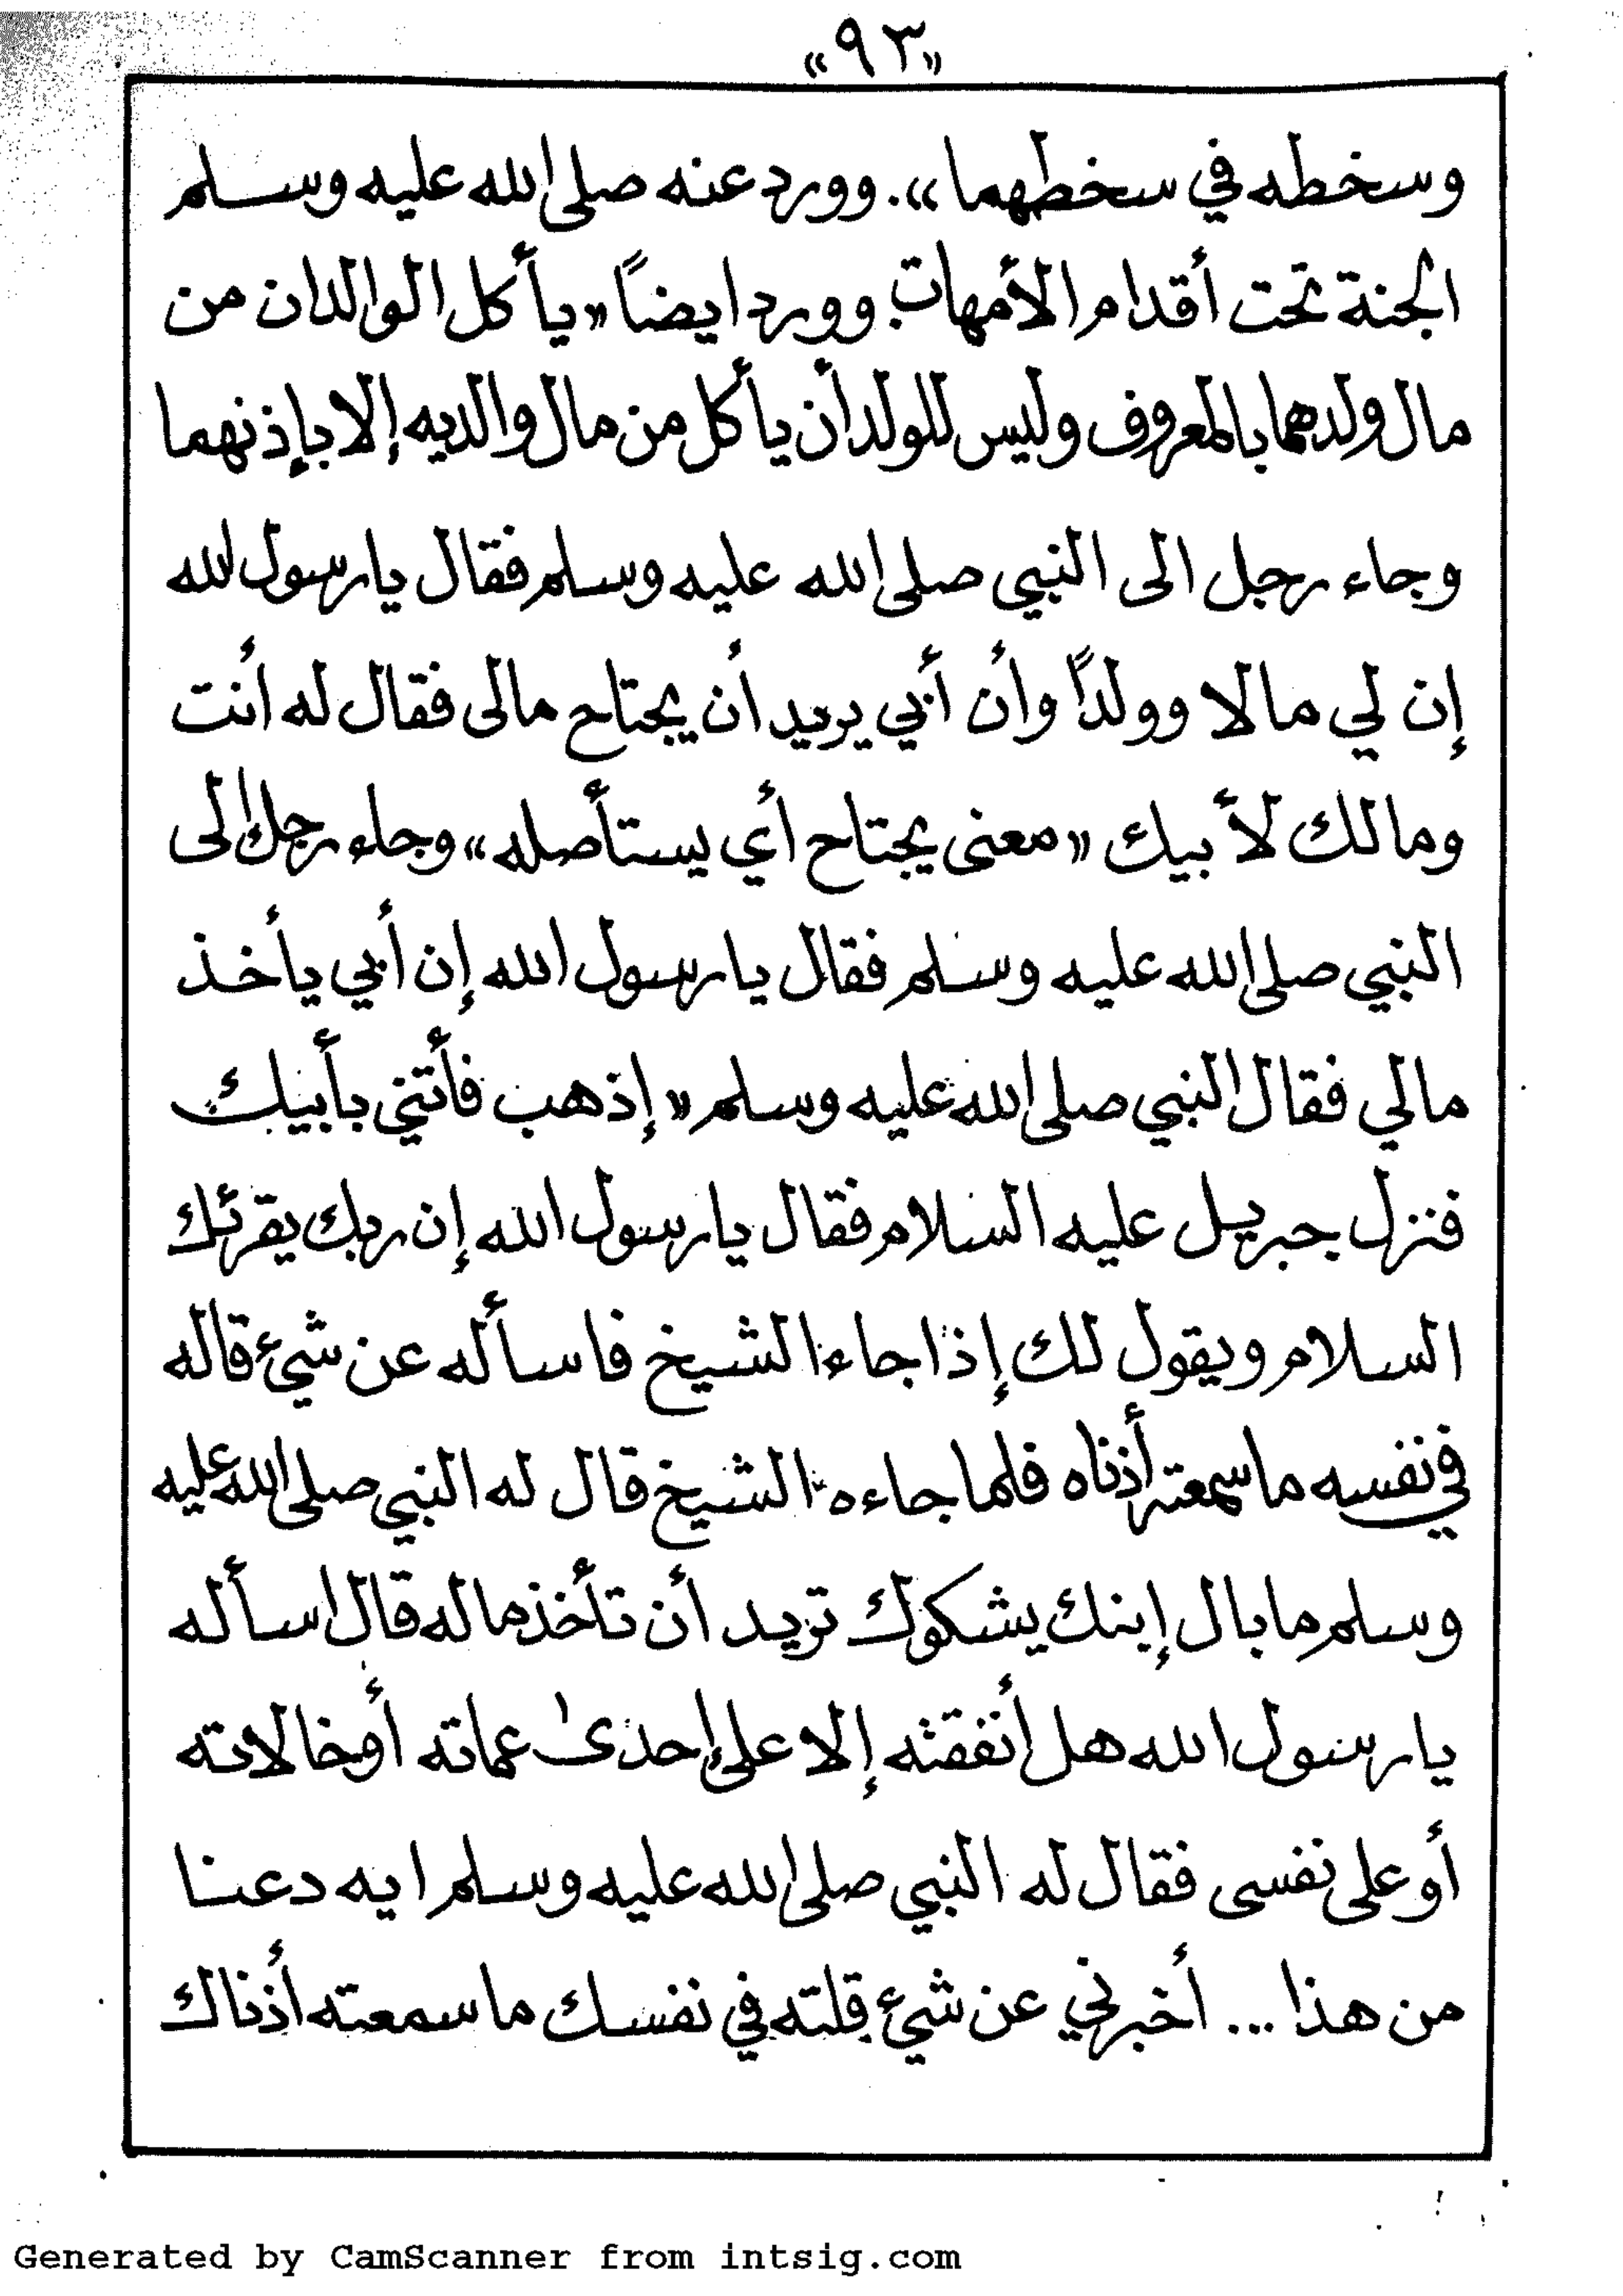 «٩٣»
وسخطه في سخطهما». وورد عنه صلى الله عليه وسلم
الجنة تحت أقدام الأمهات. وورد ايضاً «يأكل الوالدان من
مال ولدهما بالمعروف وليس للولد أن يأكل من مال والديه إلا بإذنهما
وجاء رجل الى النبي صلى الله عليه وسلم فقال يا رسول الله
إن لي مالا وولداً وأن أبي يريد أن يجتاح مالى فقال له أنت
ومالك لأبيك «معنى يجتاح أي يستأصله» وجاء رجل الى
النبي صلى الله عليه وسلم فقال يا رسول الله إن أبي يأخذ
مالي فقال النبي صلى الله عليه وسلم «إذهب فأتني بأبيك
فنزل جبريل عليه السلام فقال يا رسول الله إن ربك يقرئك
السلام ويقول لك إذا جاء الشيخ فاسأله عن شيء قاله
في نفسه ما سمعته أذناه فلما جاءه الشيخ قال له النبي صلى الله عليه
وسلم ما بال إبنك يشكوك تريد أن تأخذ ماله قال اسأله
يا رسول الله هل أنفقته إلا على إحدى عماته أو خالاته
أو على نفسى فقال له النبي صلى الله عليه وسلم ايه دعنا
من هذا ... أخبرني عن شيء قلته في نفسك ما سمعته أذناك
Generated by CamScanner from intsig.com